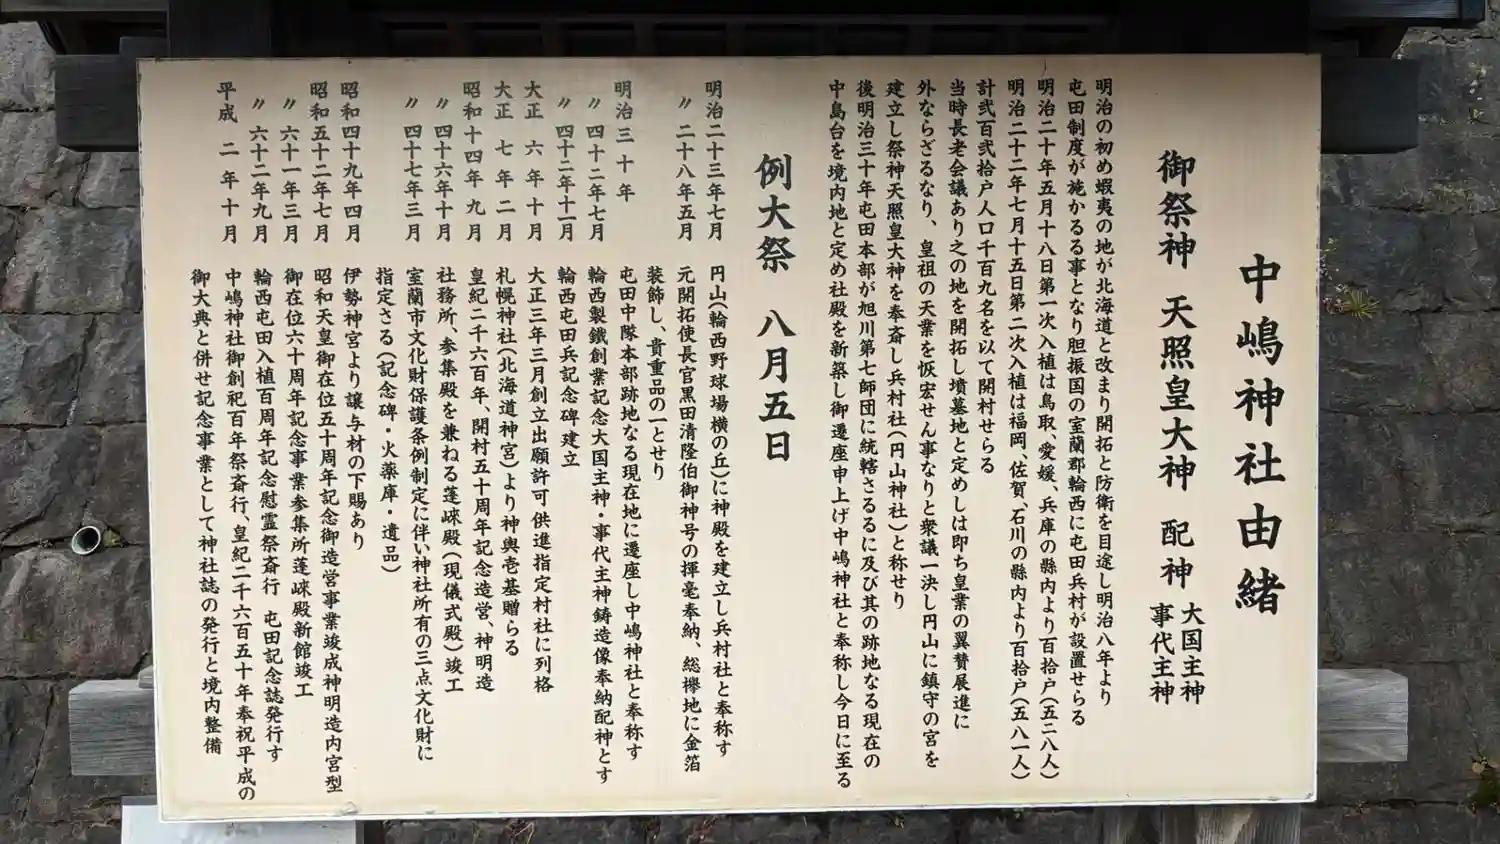 中嶋神社由緒
御祭神 天照皇大神 配神 大国主神
事代主神
明治の初め蝦夷の地が北海道と改まり開拓と防衛を目途し明治八年より
屯田制度が施かるる事となり胆振国の室蘭郡輪西に屯田兵村が設置せらる
明治二十年五月十八日第一次入植は鳥取、愛媛、兵庫の縣内より百拾戸(五二八人)
明治二十二年七月十五日第二次入植は福岡、佐賀、石川の縣内より百拾戸(五八一人)
計弐百弐拾戸人口千百九名を以て開村せらる
当時長老会議あり之の地を開拓し墳墓地と定めしは即ち皇業の翼賛展進に
外ならざるなり、皇祖の天業を恢宏せん事なりと衆議一決し円山に鎮守の宮を
建立し祭神天照皇大神を奉斎し兵村社(円山神社)と称せり
後明治三十年屯田本部が旭川第七師団に統轄さるるに及び其の跡地なる現在の
中島台を境内地と定め社殿を新築し御遷座申上げ中嶋神社と奉称し今日に至る
例大祭 八月五日
明治二十三年七月 円山(輪西野球場横の丘)に神殿を建立し兵村社と奉称す
〃 二十八年五月 元開拓使長官黒田清隆伯御神号の揮毫奉納、総欅地に金箔
装飾し、貴重品の一とせり
明治三十年 屯田中隊本部跡地なる現在地に遷座し中嶋神社と奉称す
〃 四十二年七月 輪西製鐵創業記念大国主神・事代主神鋳造像奉納配神とす
〃 四十二年十一月 輪西屯田兵記念碑建立
大正 六年十月 大正三年三月創立出願許可供進指定村社に列格
大正 七年二月 札幌神社(北海道神宮)より神輿壱基贈らる
昭和十四年九月 皇紀二千六百年、開村五十周年記念造営、神明造
〃 四十六年十月 社務所、参集殿を兼ねる蓬崍殿(現儀式殿)竣工
〃 四十七年三月 室蘭市文化財保護条例制定に伴い神社所有の三点文化財に
指定さる(記念碑・火薬庫・遺品)
昭和四十九年四月 伊勢神宮より譲与材の下賜あり
昭和五十二年七月 昭和天皇御在位五十周年記念御造営事業竣成神明造内宮型
〃 六十一年三月 御在位六十周年記念事業参集所蓬崍殿新館竣工
〃 六十二年九月 輪西屯田入植百周年記念慰霊祭斎行 屯田記念誌発行す
平成 二年十月 中嶋神社御創祀百年祭斎行、皇紀二千六百五十年奉祝平成の
御大典と併せ記念事業として神社誌の発行と境内整備